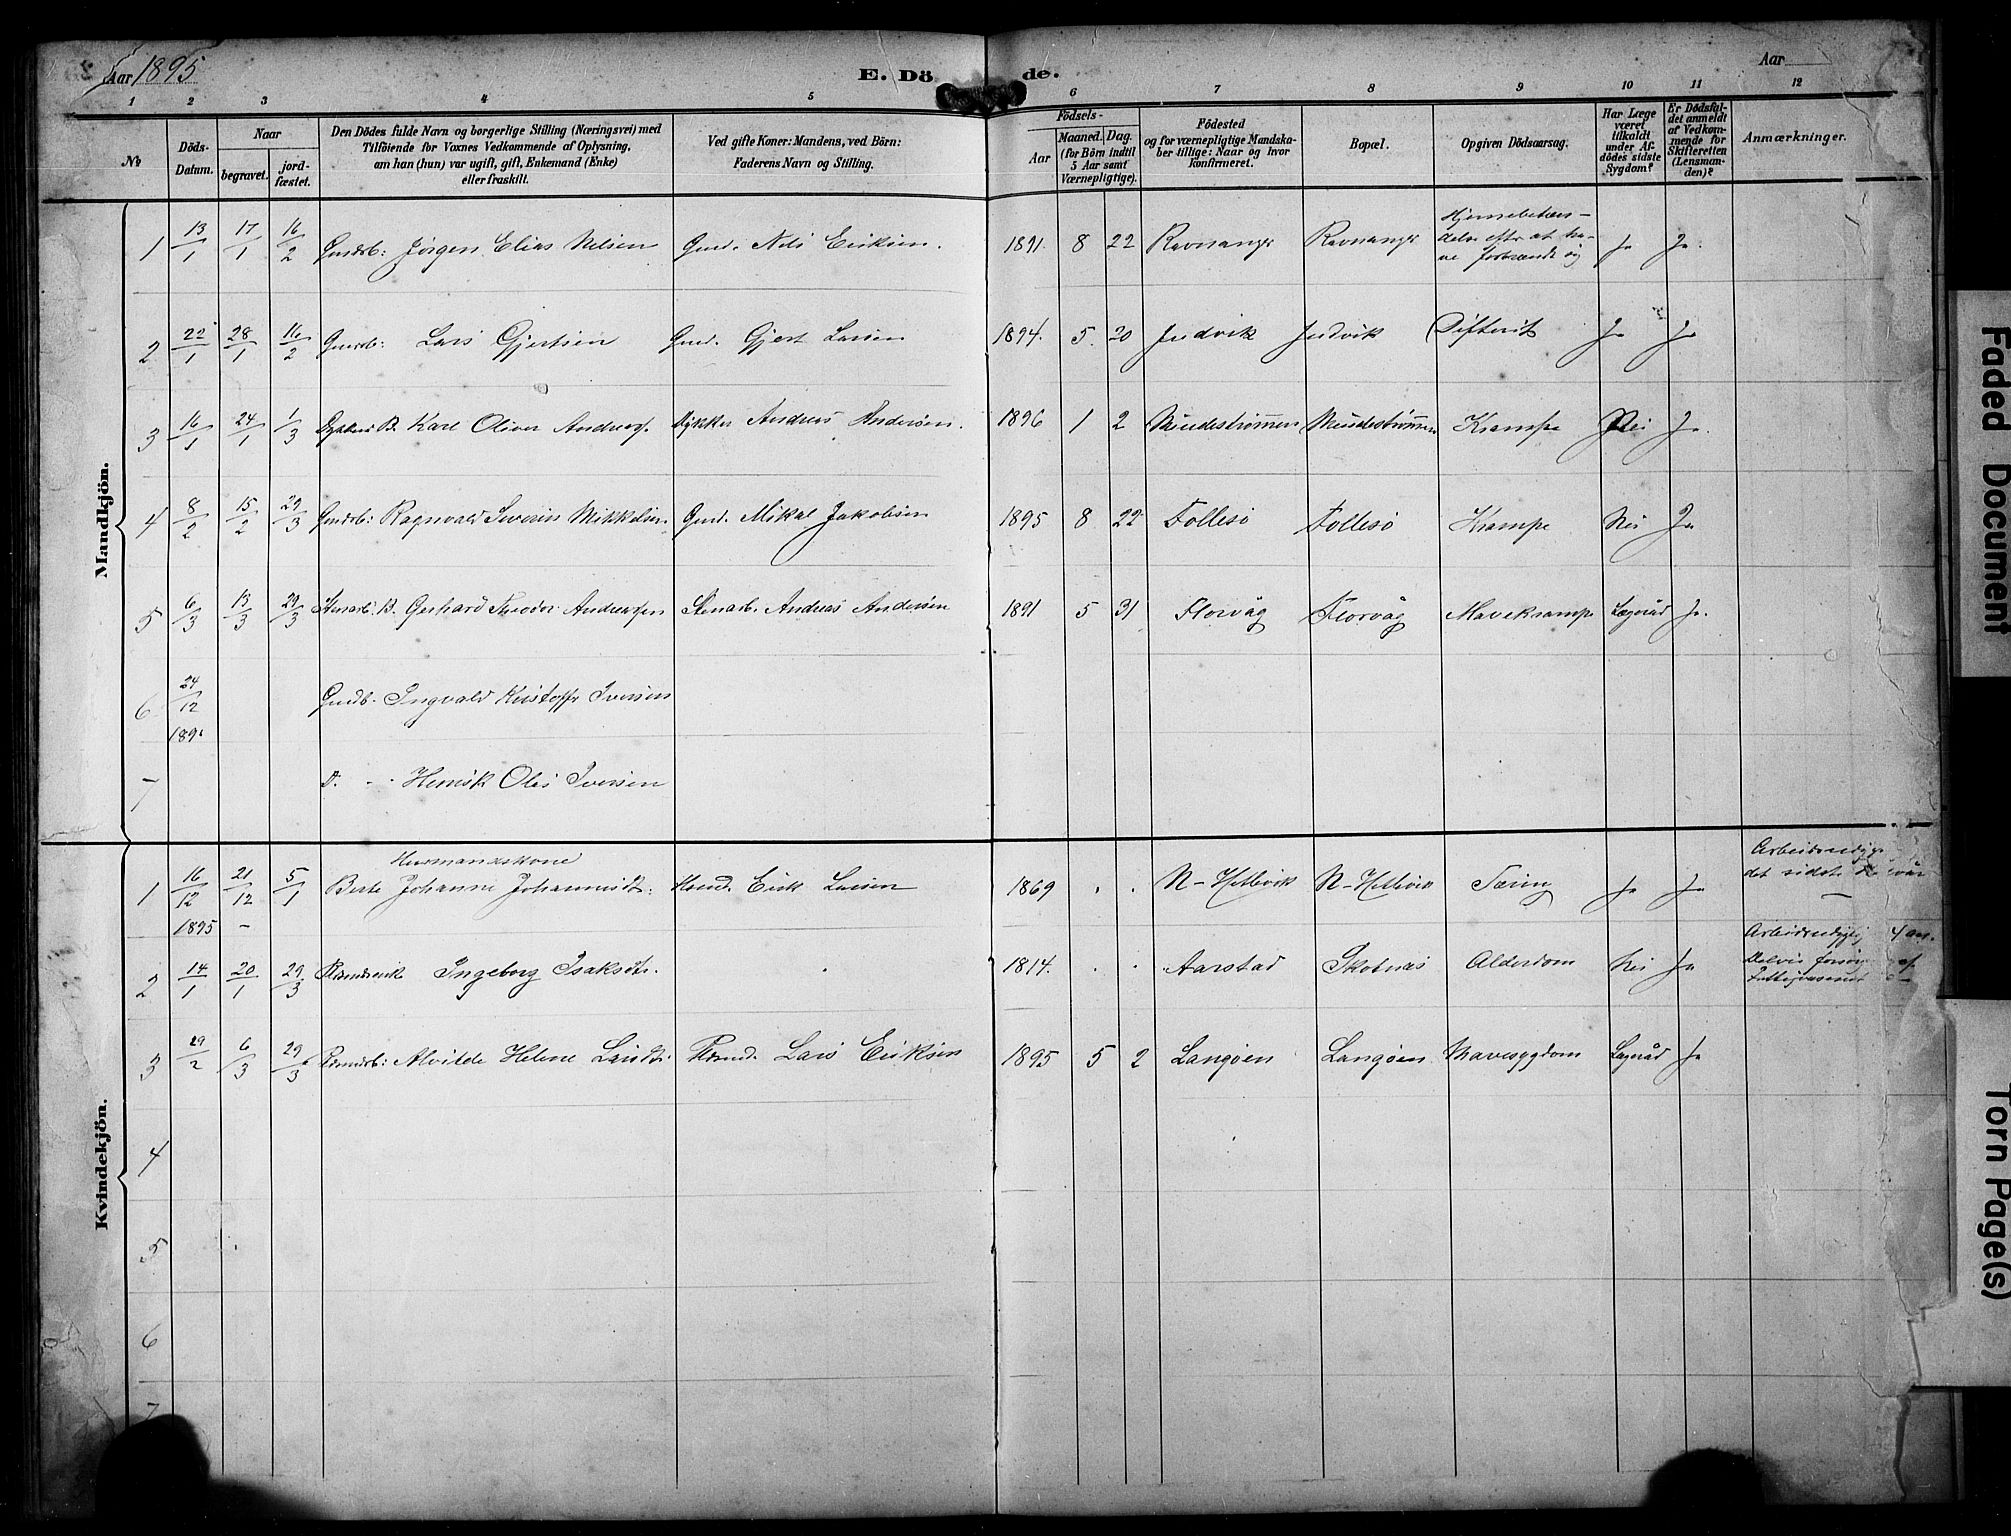 Aar 1895
E. Dö de.
Aar
1 2 3 4 5 6 7 8 9 10 11 12
No
Döds-Datum.
Naar
begravet.
jord-fæstet.
Den Dödes fulde Navn og borgerlige Stilling (Næringsvei) med
Tilföiende for Voxnes Vedkommende af Oplysning,
am han (hun) var ugift, gift, Enkemand (Enke)
eller fraskilt.
Ved gifte Koner: Mandens, ved Börn:
Faderens Navn og Stilling.
Födsels-
Aar
Maaned. Dag.
(for Börn indtil
5 Aar samt
Værnepligtige).
Födested
og for værnepligtige Mandska-
ber tillige: Naar og hvor
konfirmeret.
Bopæl.
Opgiven Dödsaarsag.
Har Læge
været
tilkaldt
under Af-
dödes sidste
Sygdom?
Er Dödsfal-
det anmeldt
af Vedkom-
mende for
Skifteretten
(Lensman-
den)?
Anmærkninger.
Mandkjön.
1 13/1 17/1 16/2 Gmdsb: Jörgen Elias Nilsen Gmd. Nils Eriksen. 1891 8 22 Ravnanger Ravnanger Ja Ja.
2 22/1 28/1 16/2 Gmdsb: Lars Gjertsen Gmd. Gjert Larsen 1894. 5. 20 Indvik Indvik Difterit Ja Ja
3 16/1 24/1 1/3 Dykkers B. Karl Oliver Andreass. Dykker Andreas Andersen. 1896 1 2 Mindeströmmen Mindeströmmen Krampe Nei Ja.
4 8/2 15/2 29/3 Gmdsb: Ragnvald Severin Mikkelsen. Gmd. Mikal Jakobsen 1895 8 22 Follesö Follesö Krampe Nei Ja
5 6/3 13/3 29/3 Stenarb. B. Gerhard Teodor Andreassen Stenarb. Andreas Andersen 1891 5 31 Florvåg Florvåg Mavekrampe Lægeråd Ja.
6 24/12 189 Gmdb. Ingvald Kristoffer Iversen
7 D. - - Henrik Olai Iversen
Kvindekjön.
Husmandskone
1 16/12 1895 21/12 - 5/1 Berte Johanne Johannesdt: Husmd. Erik Larsen 1869 . . N-Hetlevik N-Hetlevik Tæring Ja Ja Arbeidsudygt
det sidste
2 14/1 20/1 29/3 Ingeborg Isaksdt. 1814. . . Aarstad Skotnæs Alderdom Nei Ja Arbeidsudygtig 4 aar.
Delvis forsörg af
Fattigvæsenet
3 29/2 6/3 29/3 Alvilde Helene Larsdt. Lars Eriksen 1895 5 2 Langöen Langöen Mavesygdom Lægeråd Ja
4
5
6
7
Faded Document
Torn Page(s)